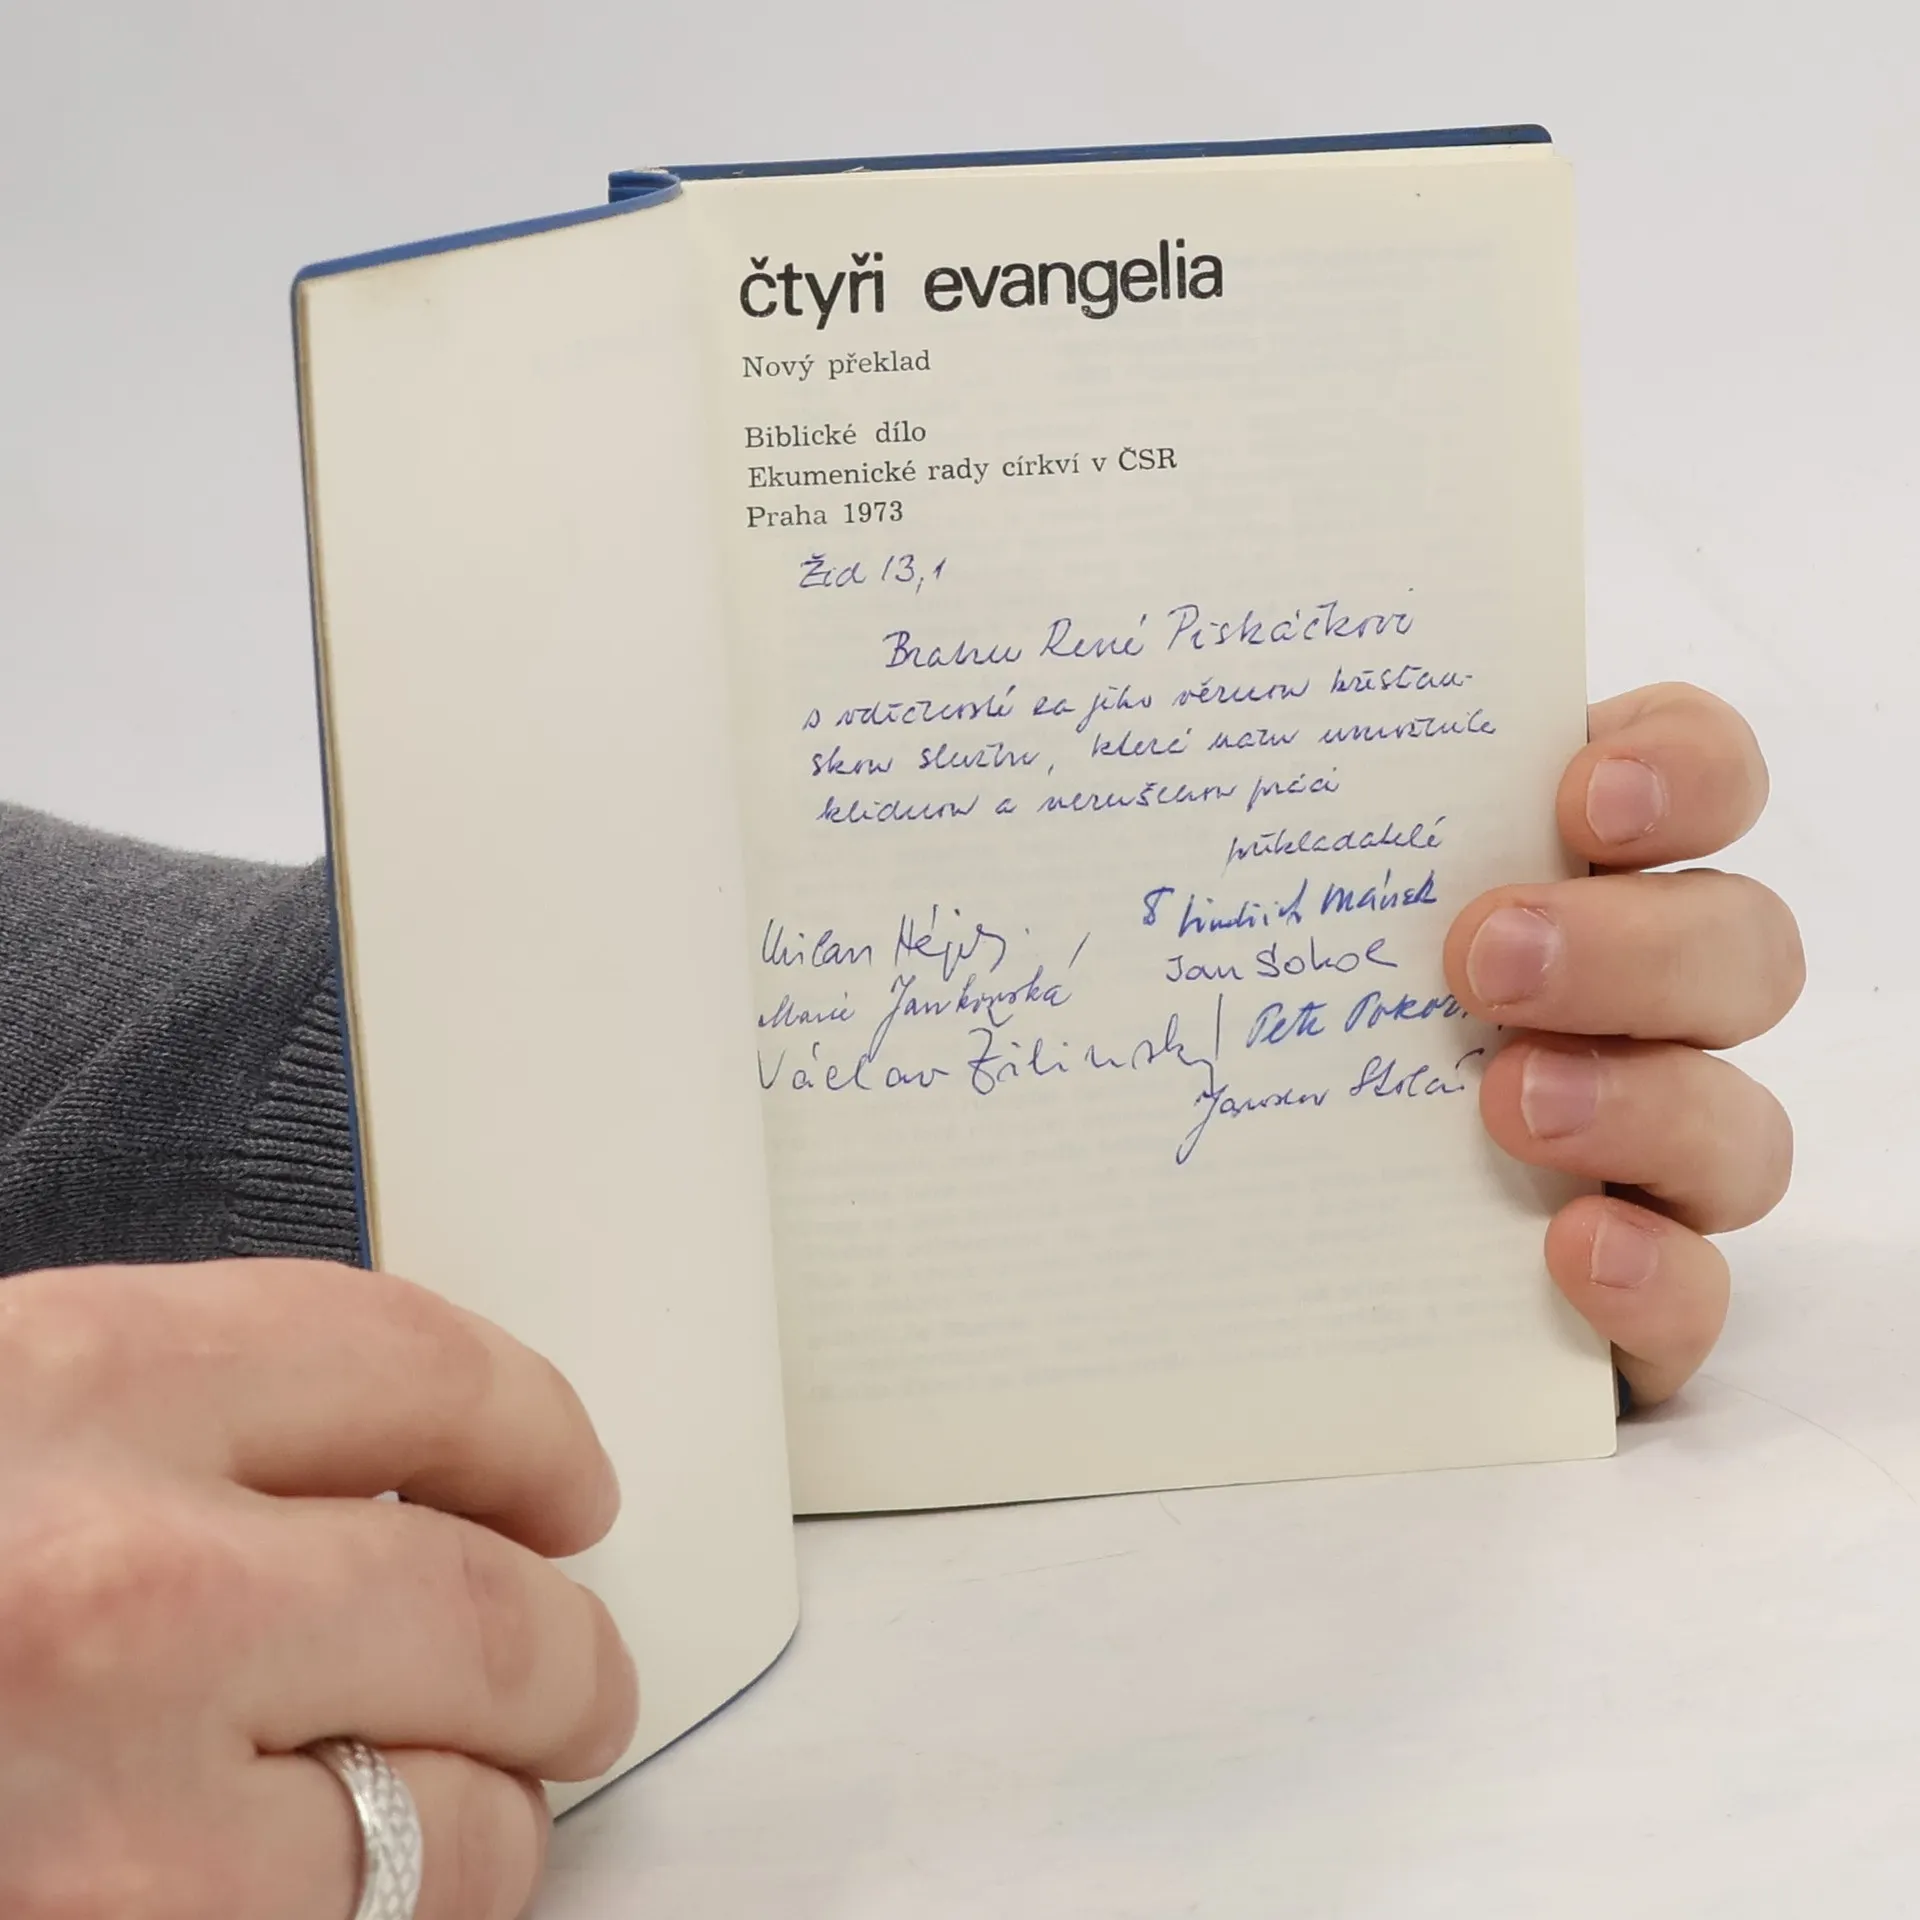 čtyři evangelia
Nový překlad
Biblické dílo
Ekumenické rady církví v ČSR
Praha 1973
Žid 13,1
Bratru René Piskáčkovi
s vděčností za jeho věrnou křesťan-
skou službu, která nám umožnila
klidnou a nerušenou práci
překladatelé
Milan Hájek
Jindřich Mánek
Jan Sokol
Marie Jankovská
Václav Žilinský
Petr Pokor
Jaroslav Stolař